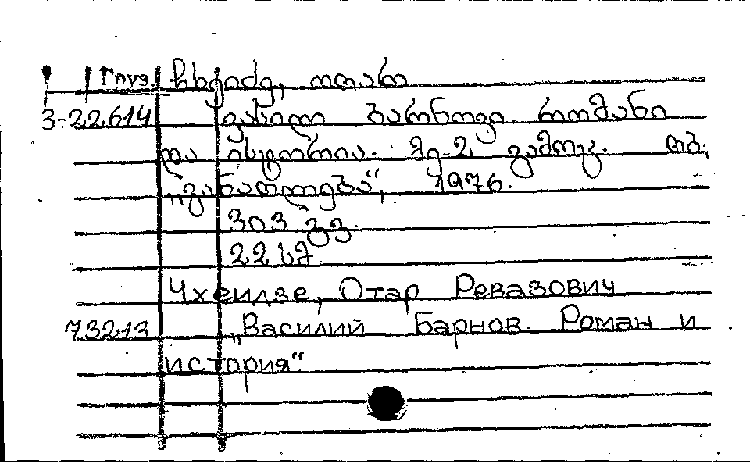 Груз. ჩხეიძე, ოთარ
3-22.614 ვასილი ბარნოვი. რომანი
და ისტორია. მე-2 გამოც. თბ.
„განათლება“, 1976.
303 გვ.
22 სმ
Чхеидзе, Отар Ревазович
73213 „Василий Барнов. Роман и
история“